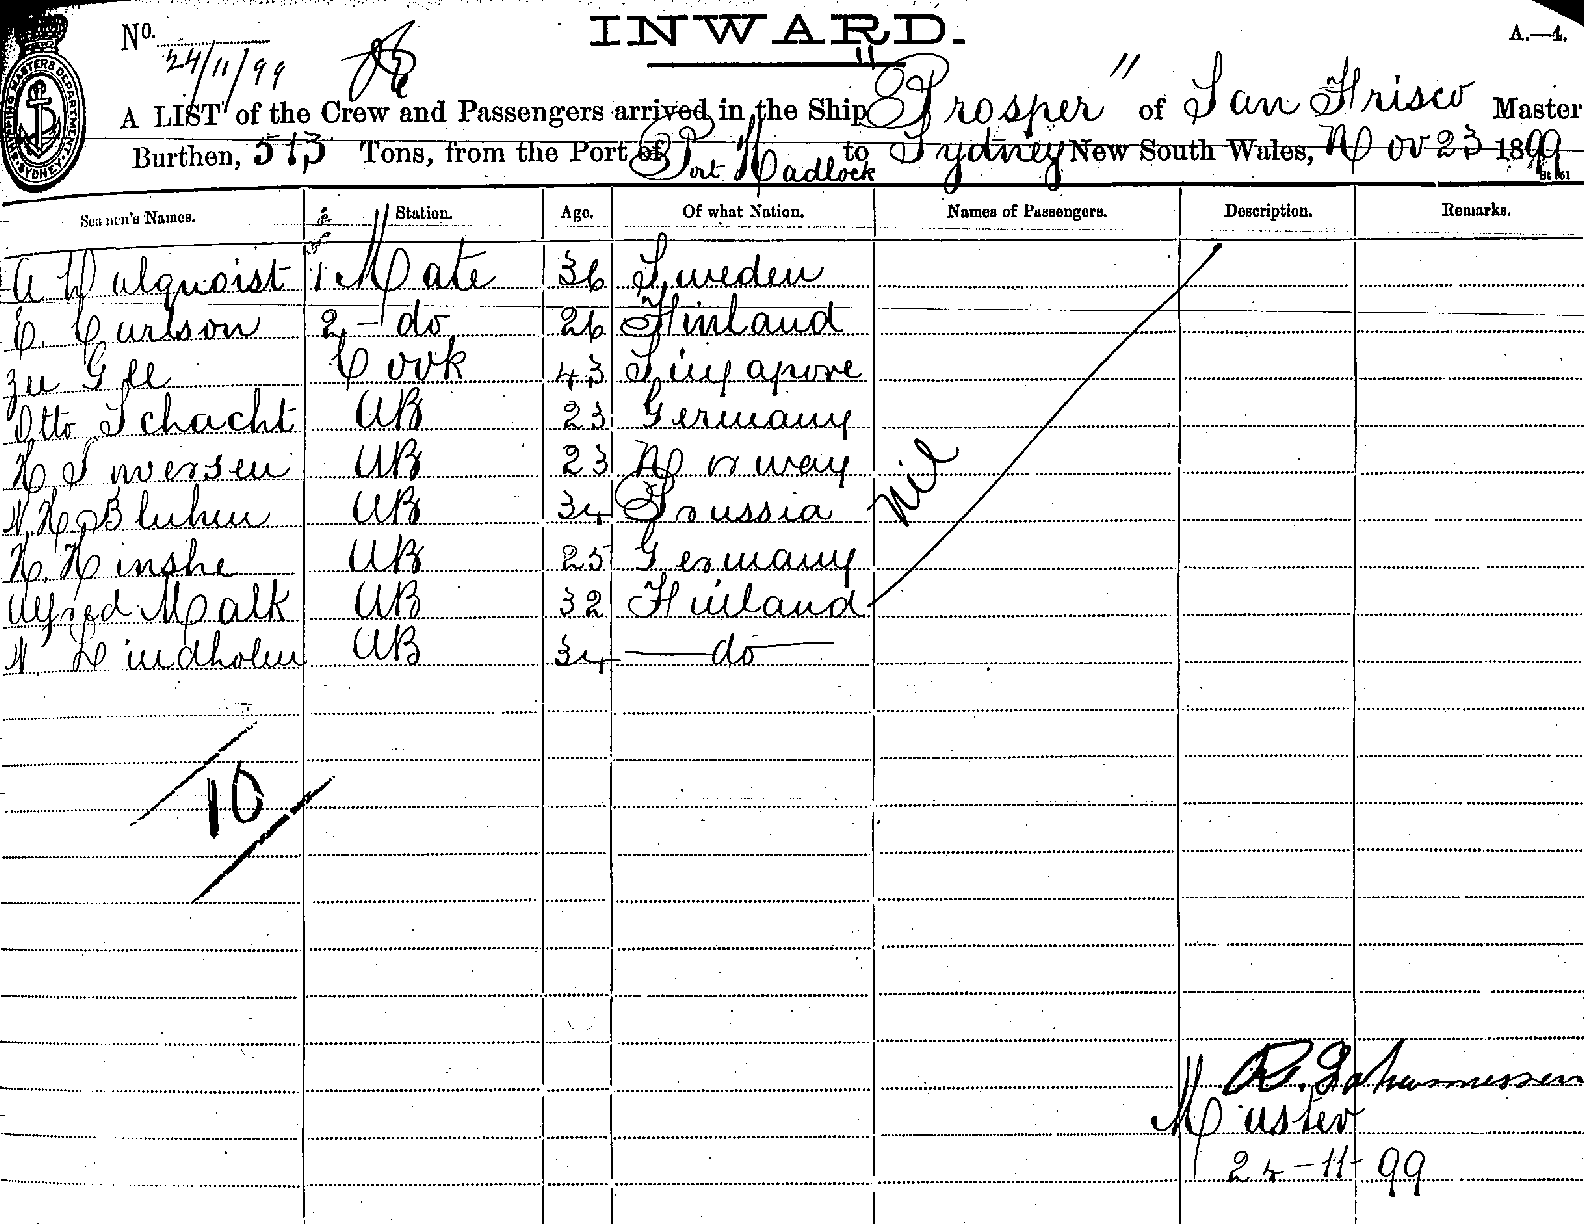 No. 24/11/99
INWARD.
A.—4.
A LIST of the Crew and Passengers arrived in the Ship "Prosper" of San Frisco Master
Burthen, 513 Tons, from the Port of Port Hadlock to Sydney New South Wales, Nov 23 1899
Seamen's Names. Station. Age. Of what Nation. Names of Passengers. Description. Remarks.
A Walquoist 1 Mate 36 Sweden
C. Carlson 2 - do 26 Finland
Gee Cook 43 Singapore
Otto Schacht AB 23 Germany
H Iversen AB 23 Norway
AB 34 Prussia
H. Hinshe AB 25 Germany
Alfred Malk AB 32 Finland
N Lindholm AB 34 — do —
nil
10
Master
24-11-99